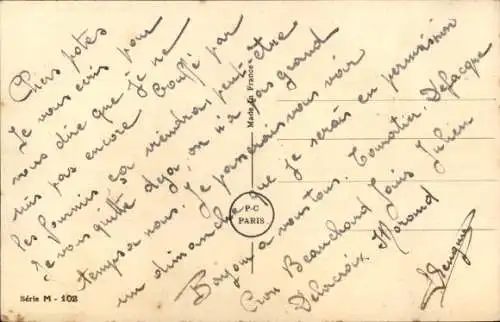 Chers potes
Je vous écris pour
vous dire que je ne
suis pas encore bouffé par
les fourmis ça viendras peut être
Je vous quitte déjà, on n'a pas grand
temps a nous. Je passerais vous voir
un dimanche que je serais en permission
Bonjour a vous tous. Delacque
Cron Beauchard Louis Julien
Delacroix. Morand
Made in France
P-C
PARIS
Série M - 102